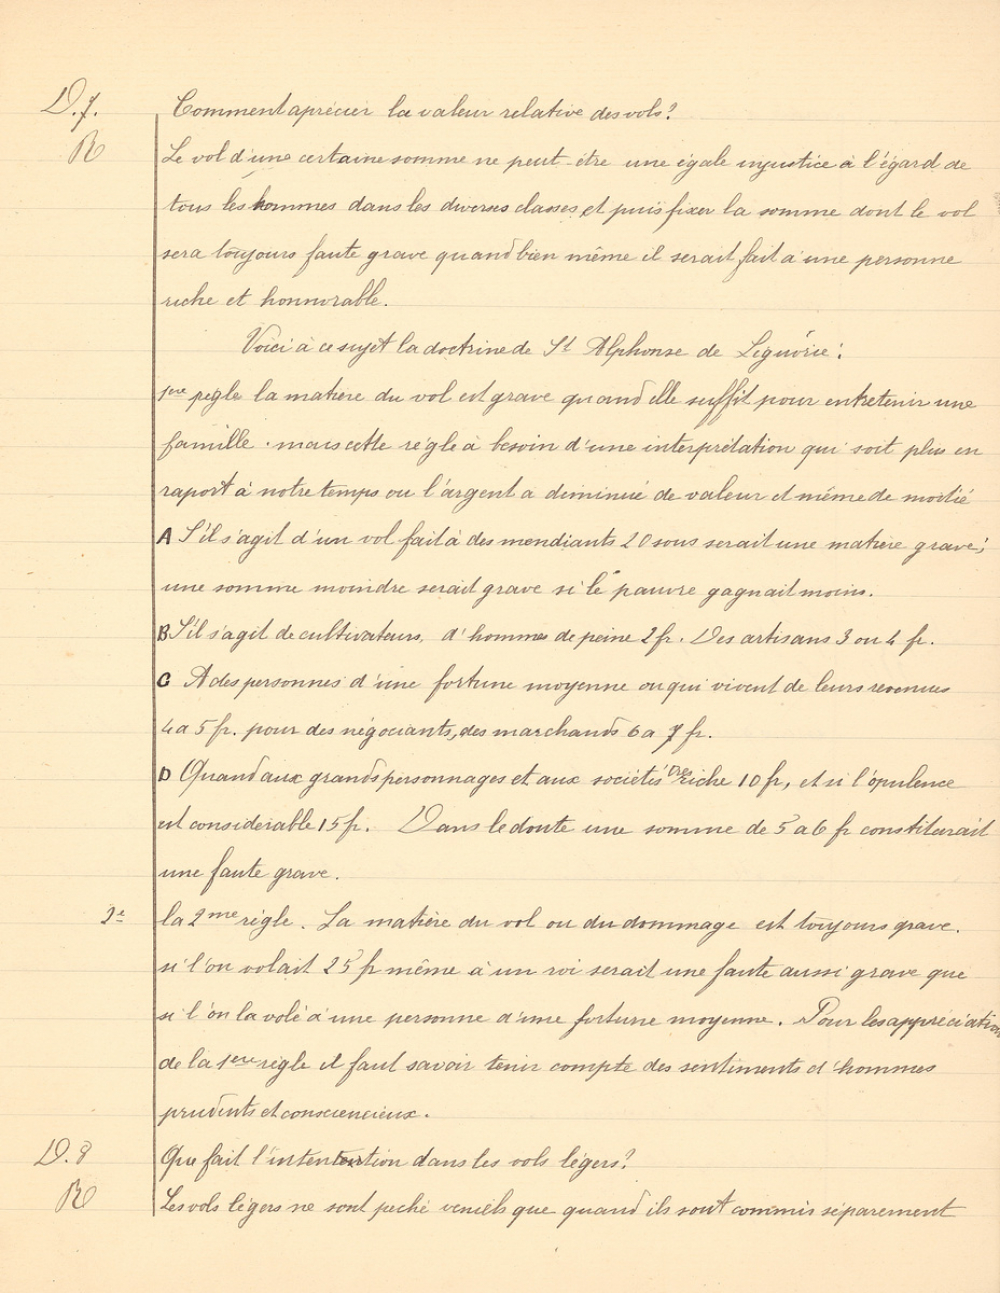 D. 7. Comment aprécier la valeur relative des vols?
R Le vol d'une certaine somme ne peut être une égale injustice à l'égard de
tous les hommes dans les diverses classes et puis fixer la somme dont le vol
sera toujours faute grave quand bien même il serait fait à une personne
riche et honnorable.
Voici à ce sujet la doctrine de St Alphonse de Liguorie:
1ere règle la matière du vol est grave quand elle suffit pour entretenir une
famille. mais cette règle à besoin d'une interprétation qui soit plus en
raport à notre temps ou l'argent a diminué de valeur et même de moitié
A S'il s'agit d'un vol fait à des mendiants 20 sous serait une matière grave;
une somme moindre serait grave si le pauvre gagnait moins.
B S'il s'agit de cultivateurs, d'hommes de peine 2 fr. Des artisans 3 ou 4 fr.
C A des personnes d'une fortune moyenne ou qui vivent de leurs revenues
4 a 5 fr. pour des négociants, des marchands 6 a 7 fr.
D Quand aux grands personnages et aux sociétés très riche 10 fr, et si l'opulence
est considérable 15 fr. Dans le doute une somme de 5 a 6 fr constituerait
une faute grave.
2e la 2me règle. La matière du vol ou du dommage est toujours grave.
si l'on volait 25 fr même à un roi serait une faute aussi grave que
si l'on la volé à une personne d'une fortune moyenne. Pour les appréciation
de la 1ere règle il faut savoir tenir compte des sentiments d'hommes
prudents et consciencieux.
D. 8 Que fait l'intention dans les vols légers?
R Les vols légers ne sont peché veniels que quand ils sont commis séparement